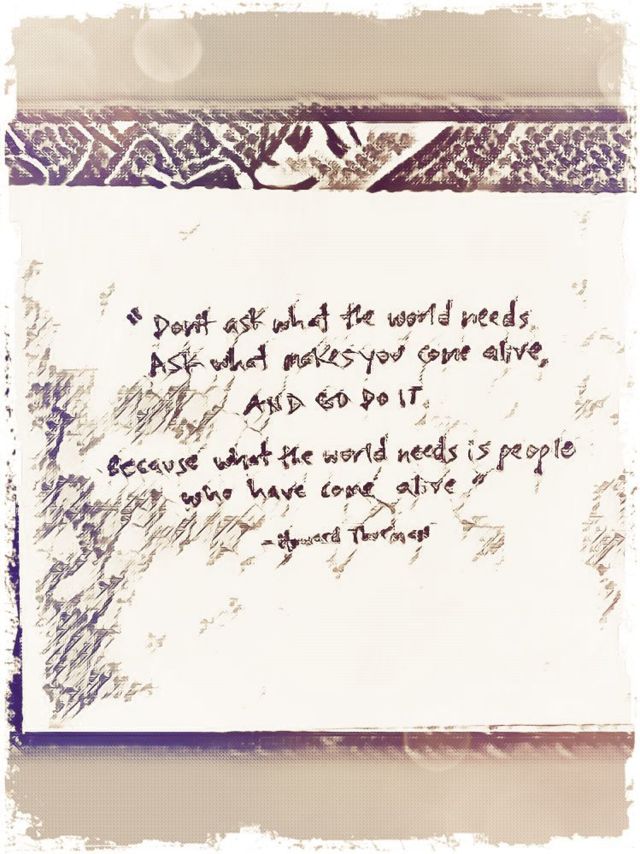 "Don't ask what the world needs.
Ask what makes you come alive,
AND GO DO IT.
Because what the world needs is people
who have come alive"
-Howard Thurman